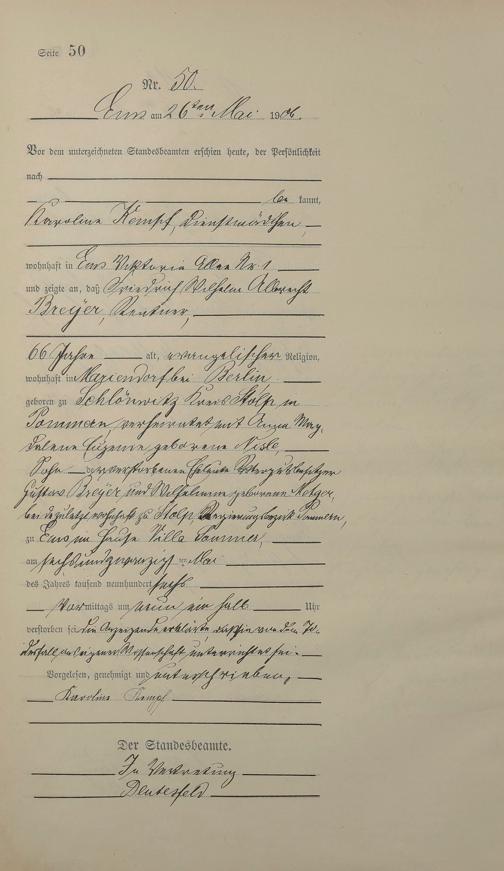 Seite 50
Nr. 50.
Ems am 26ten Mai 1906.
Vor dem unterzeichneten Standesbeamten erschien heute, der Persönlichkeit
nach
be kannt,
Karoline Kempf, Dienstmädchen,
wohnhaft in Ems Viktoria Allee Nr. 1
und zeigte an, daß Friedrich Wilhelm Albrecht
Breyer, Rentner,
66 Jahre alt, evangelischer Religion,
wohnhaft in Mariendorf bei Berlin
geboren zu Schlönwitz Kreis Stolp in
Pommern verheiratet mit Anna Mag-
dalene Eugenie geborene Nisle,
Sohn der verstorbenen Eheleute Rittergutsbesitzer
Gustav Breyer und Wilhelmine geborenen Metger,
beide zuletzt wohnhaft zu Stolp, Regierungsbezirk Pommern,
zu Ems im Hause Villa Sommer,
am sechsundzwanzigsten Mai
des Jahres tausend neunhundert sechs
Vormittags um neun ein halb Uhr
verstorben sei. Die Anzeigende erklärte, daß sie von dem To-
desfall aus eigener Wissenschaft unterrichtet sei.
Vorgelesen, genehmigt und unterschrieben.
Karoline Kempf
Der Standesbeamte.
In Vertretung